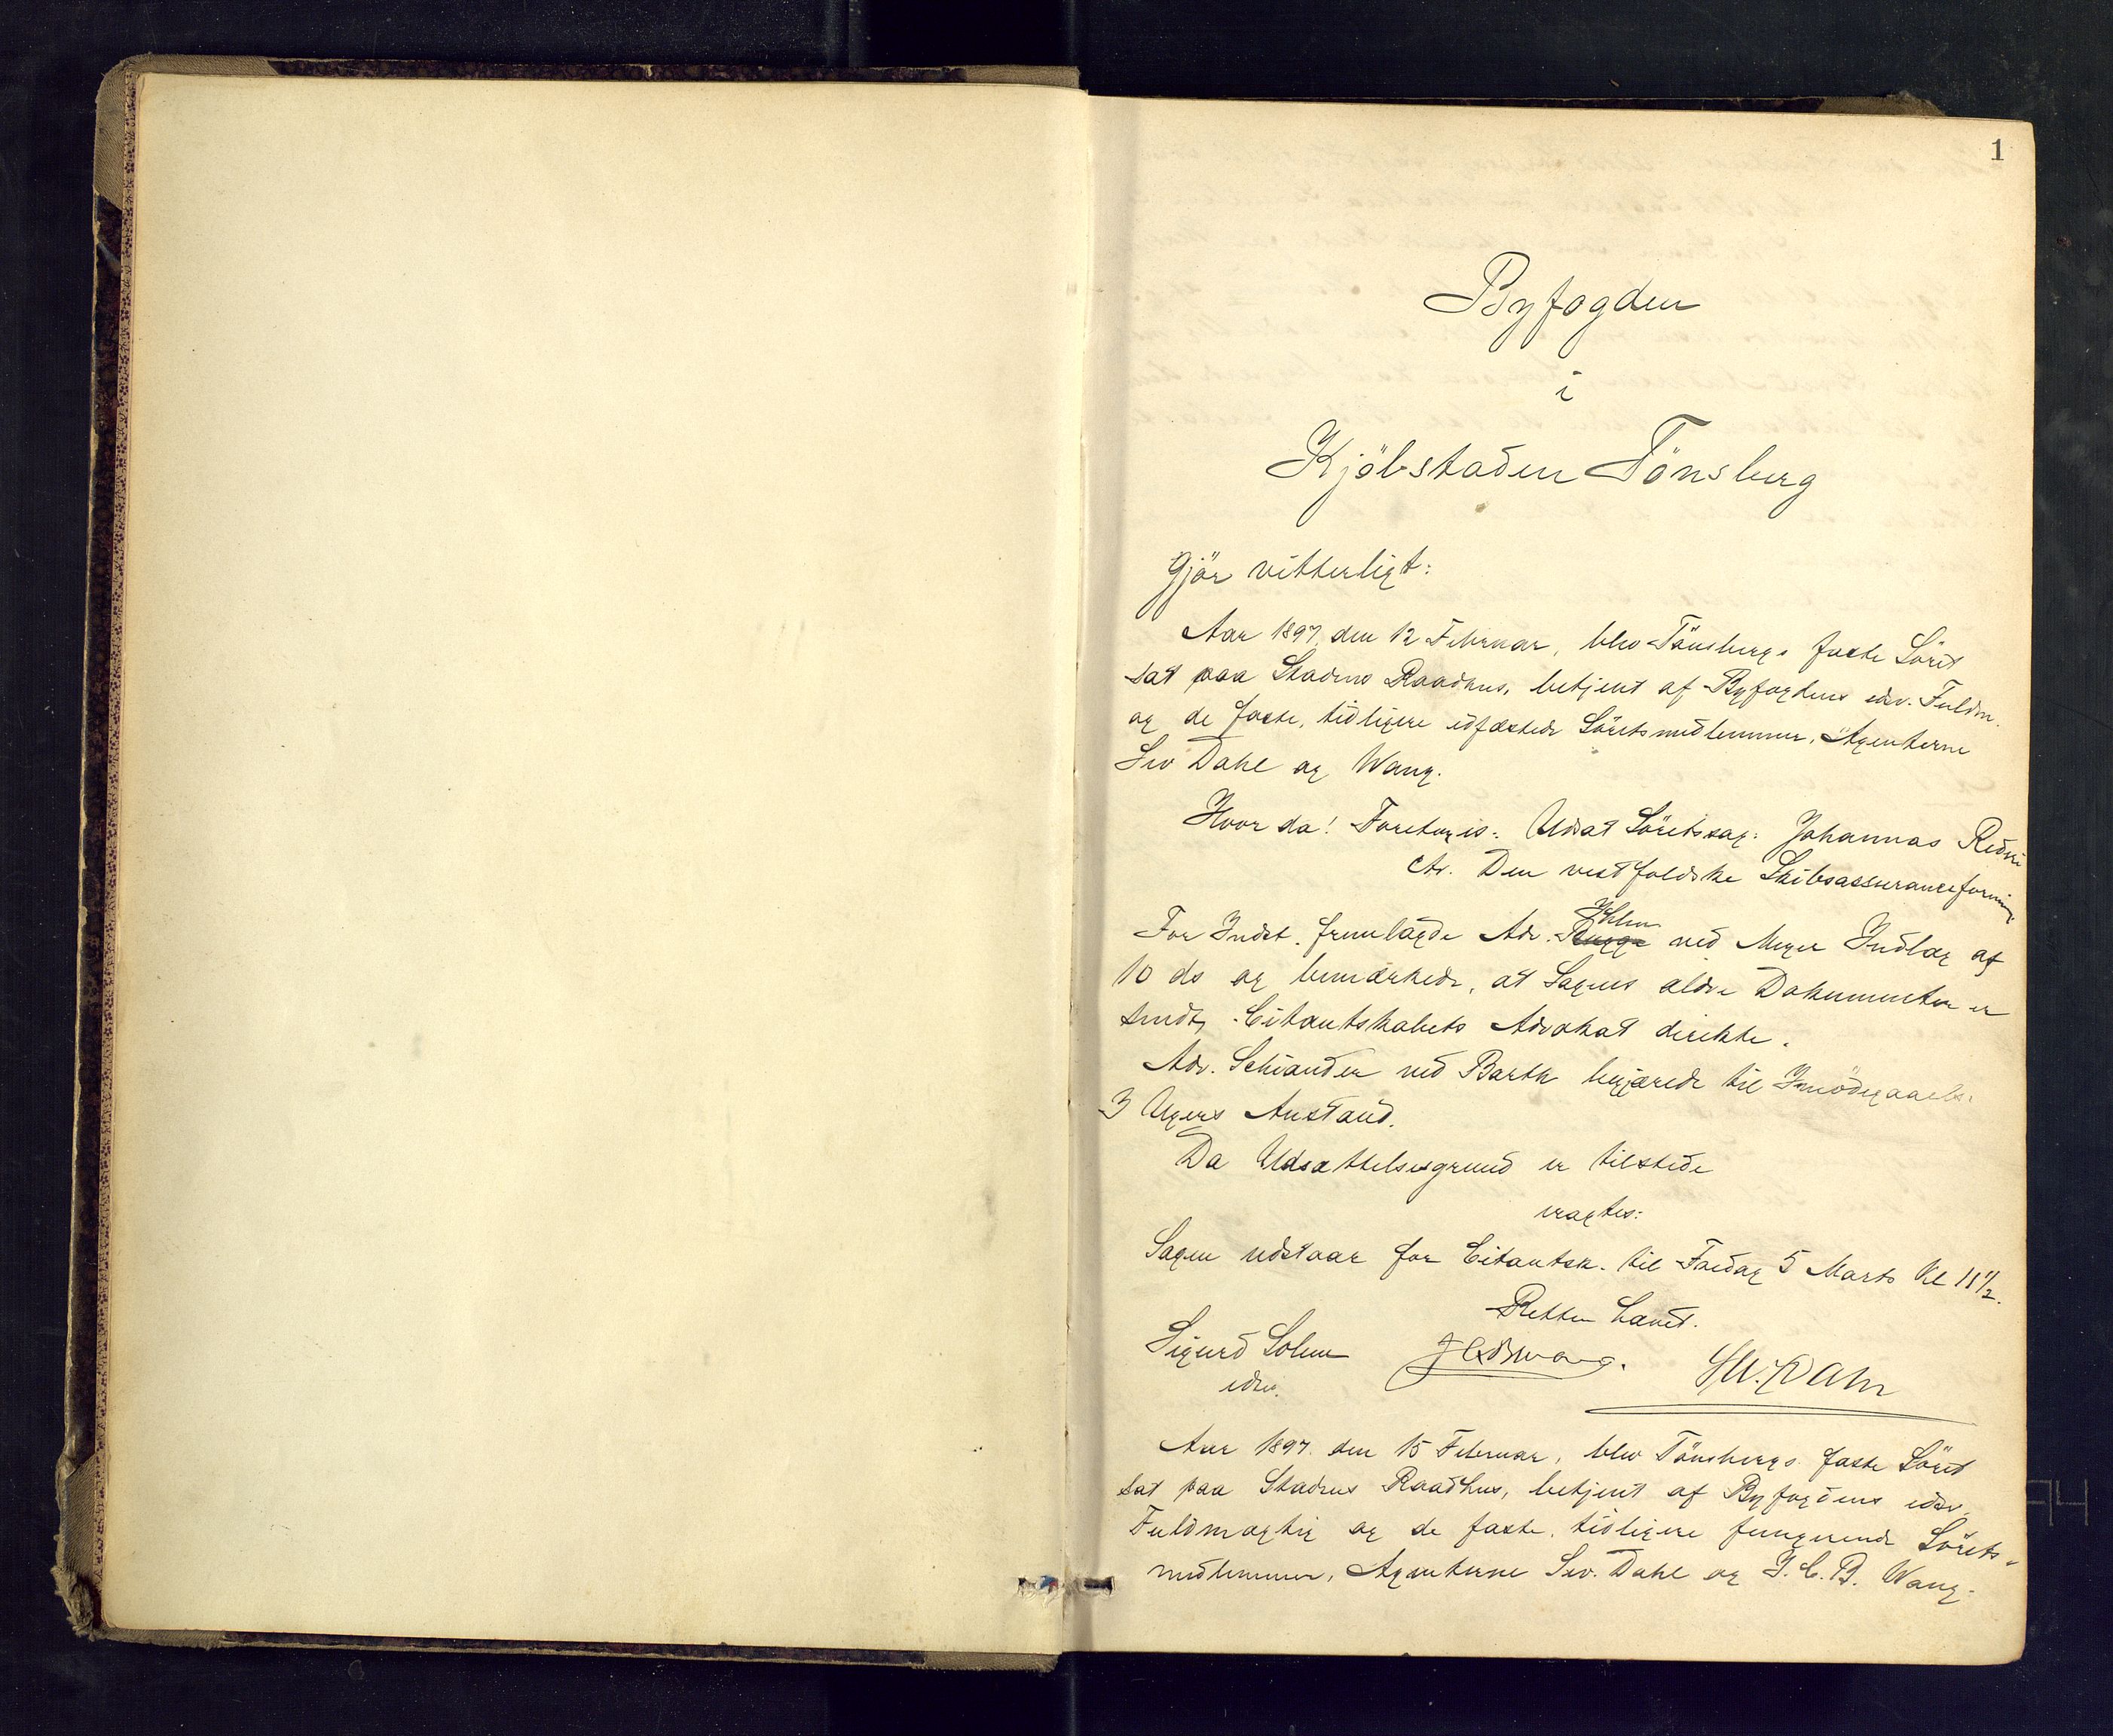 1
Byfogden
i
Kjöbstaden Tönsberg
Gjör vitterligt:
Aar 1897, den 12 Februar, blev Tönsbergs faste Söret
sat paa Stadens Raadhus, betjent af Byfogdens edsv. Fuldm.
og de faste, tidligere edfæstede Söretsmedlemmer, Agenterne
Sev Dahl og Wang.
Hvor da! Foretoges: Udsat Söretssag: Johannas Rederi
ctr. Den vestfoldske Skibsassuranceforening.
For Indst. fremlagde Adv. ved Meyer Indlæg af
10 ds og bemærkede, at Sagens ældre Dokumenter er
sendt Citantskabets Advokat direkte.
Adv. Schiander ved Barth begjærede til Imödegaaelse
3 Ugers Anstand.
Da Udsættelsesgrund er tilstede
eragtes:
Sagen udstaar for Citantsk. til Fredag 5 Marts Kl 11 1/2.
Retten hævet.
Sigurd Solem
edsv.
Sev. Dahl
Aar 1897. den 15 Februar, blev Tönsbergs faste Söret
sat paa Stadens Raadhus, betjent af Byfogdens edsv.
Fuldmægtig og de faste, tidligere fungerende Sörets-
medlemmer, Agenterne Sev. Dahl og J. C. B. Wang.